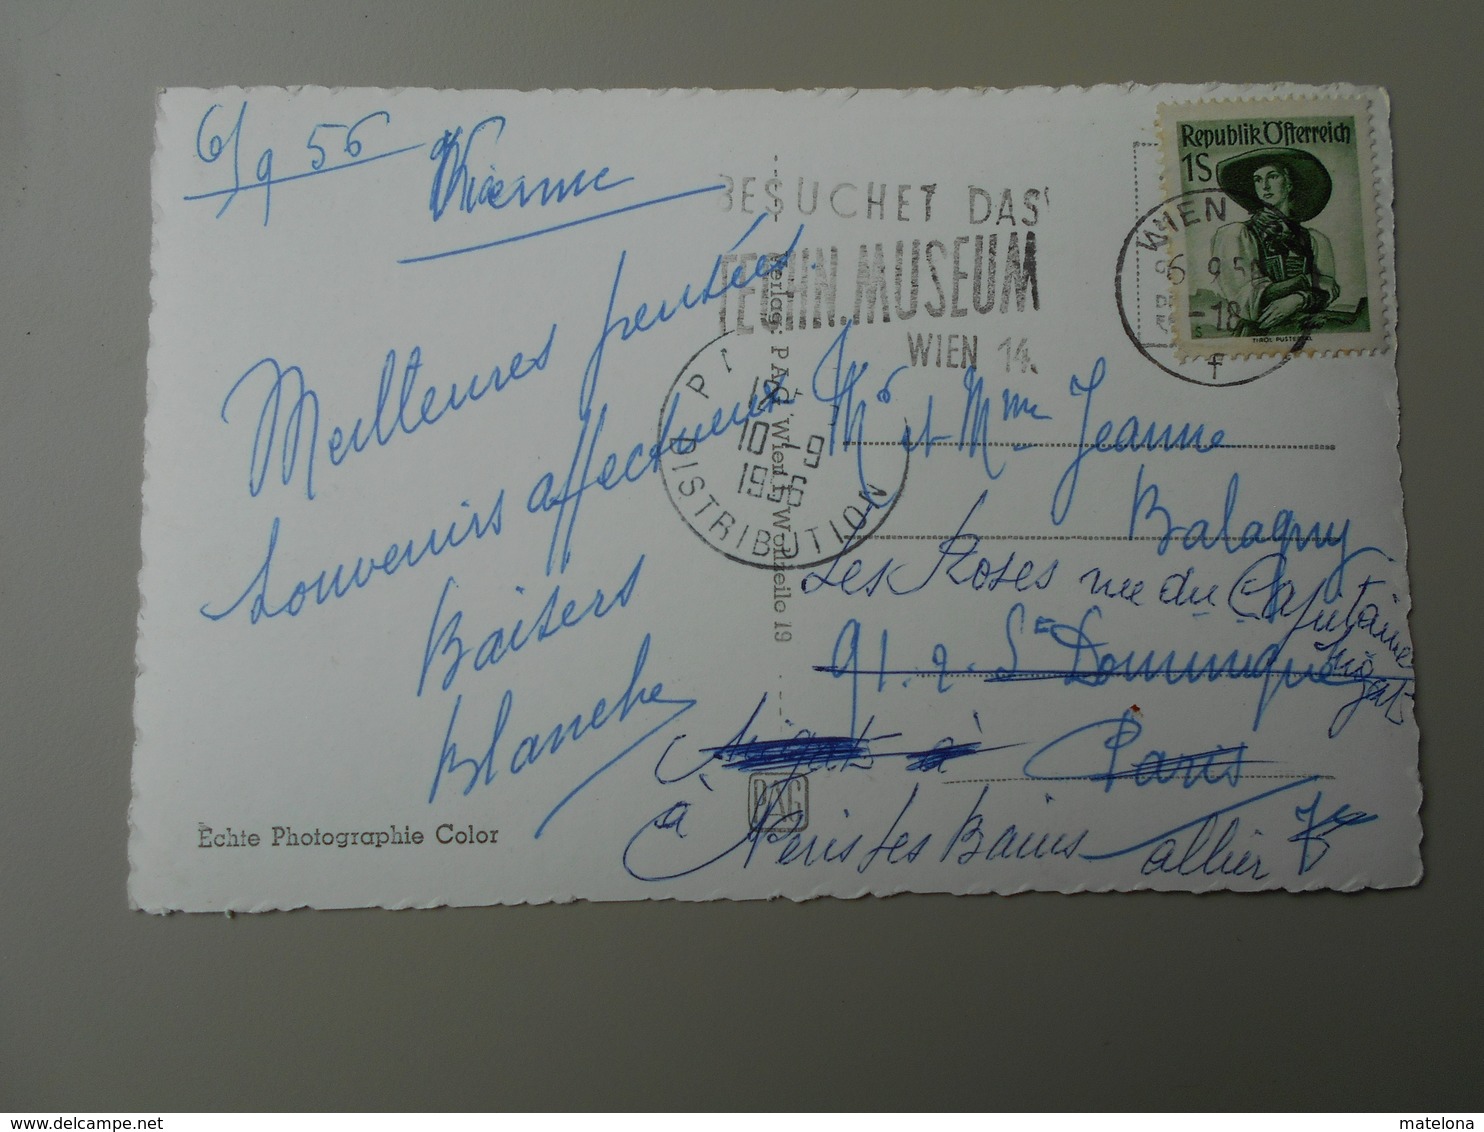 6/9 56
Vienne
Meilleures pensées
Souvenirs affectueux
Baisers
Blanche
Echte Photographie Color
Verlag: PAG Wien I, Wollzeile 19
PAG
BESUCHET DAS
TECHN. MUSEUM
WIEN 14.
Republik Österreich
1S
TIROL PUSTERTAL
WIEN
6 9 56
-18
f
12
10 -9
1956
DISTRIBUTION
Mr et Mme Jeanne
Balagny
Les Roses rue du Capitaine
Migat
91. r. St Dominique
à
Paris
7e
à Néris les Bains
Allier
matelona